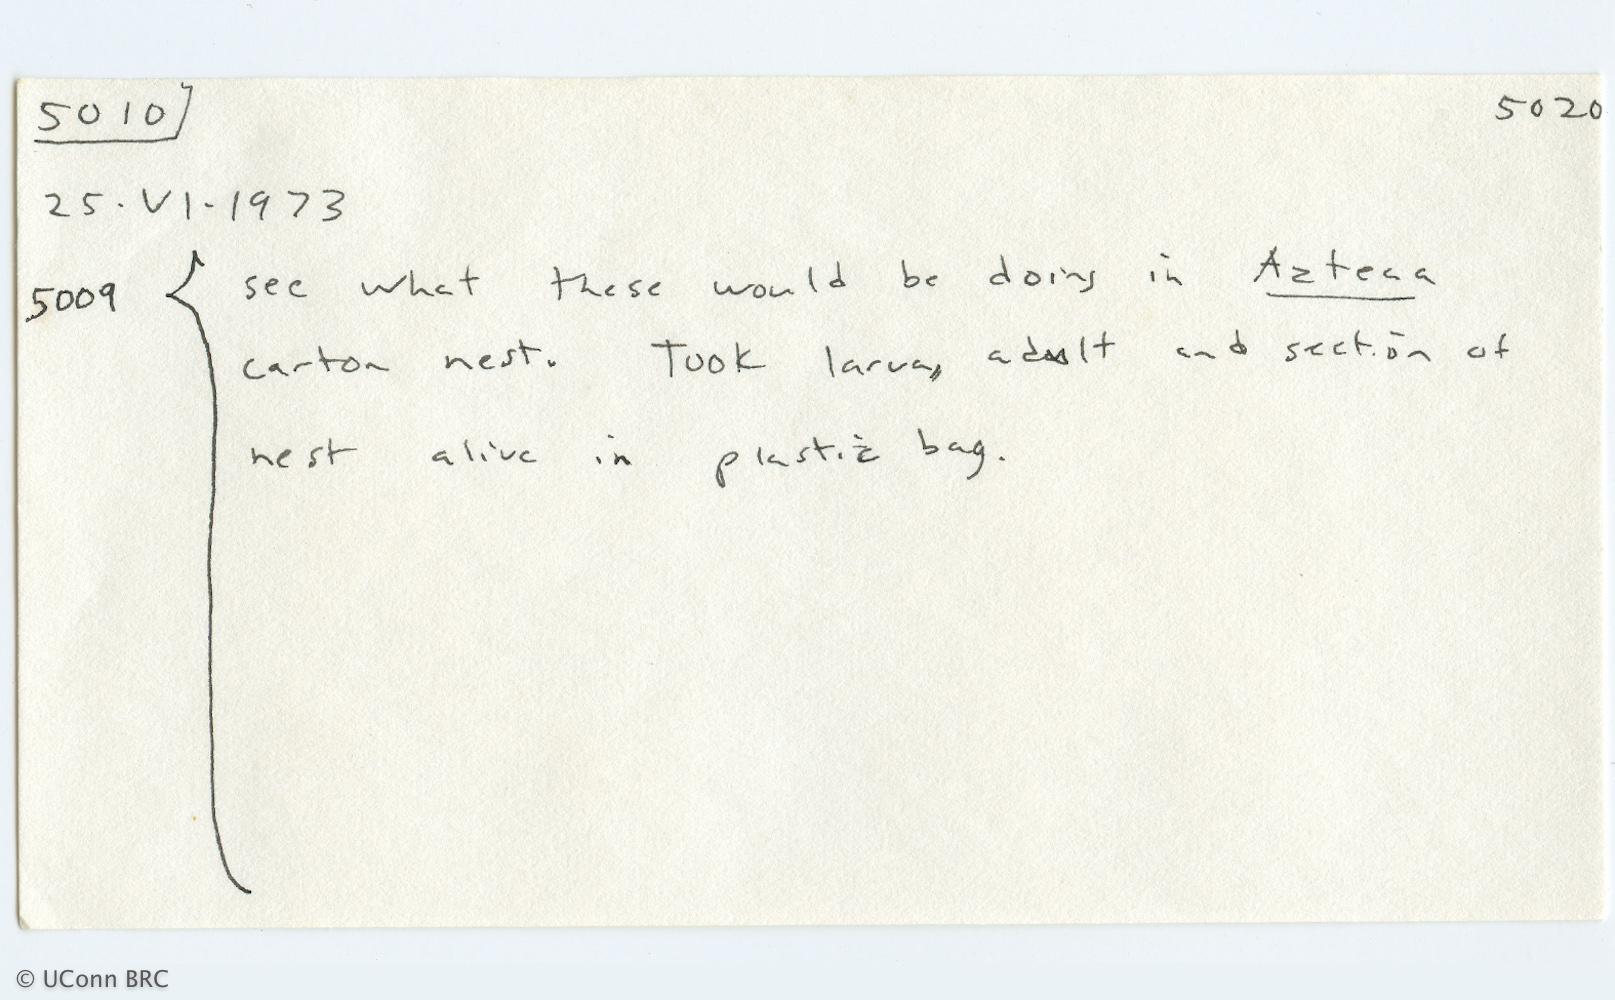 5010 5020
25.VI.1973
5009 { see what these would be doing in Azteca
carton nest. Took larva, adult and section of
nest alive in plastic bag.
© UConn BRC